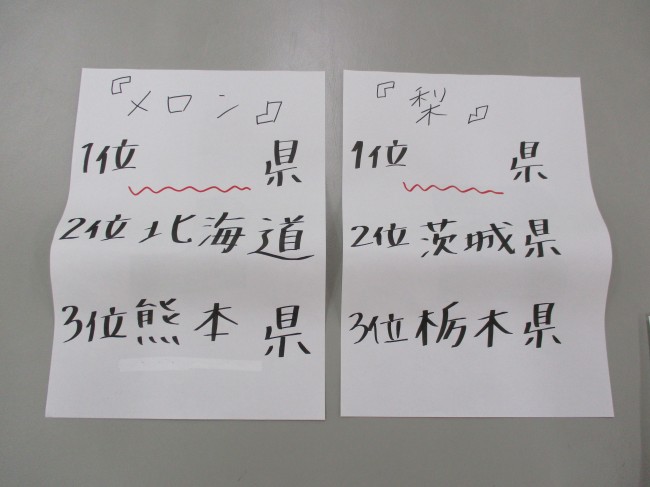 『メロン』
1位 県
2位 北海道
3位 熊本県
『梨』
1位 県
2位 茨城県
3位 栃木県